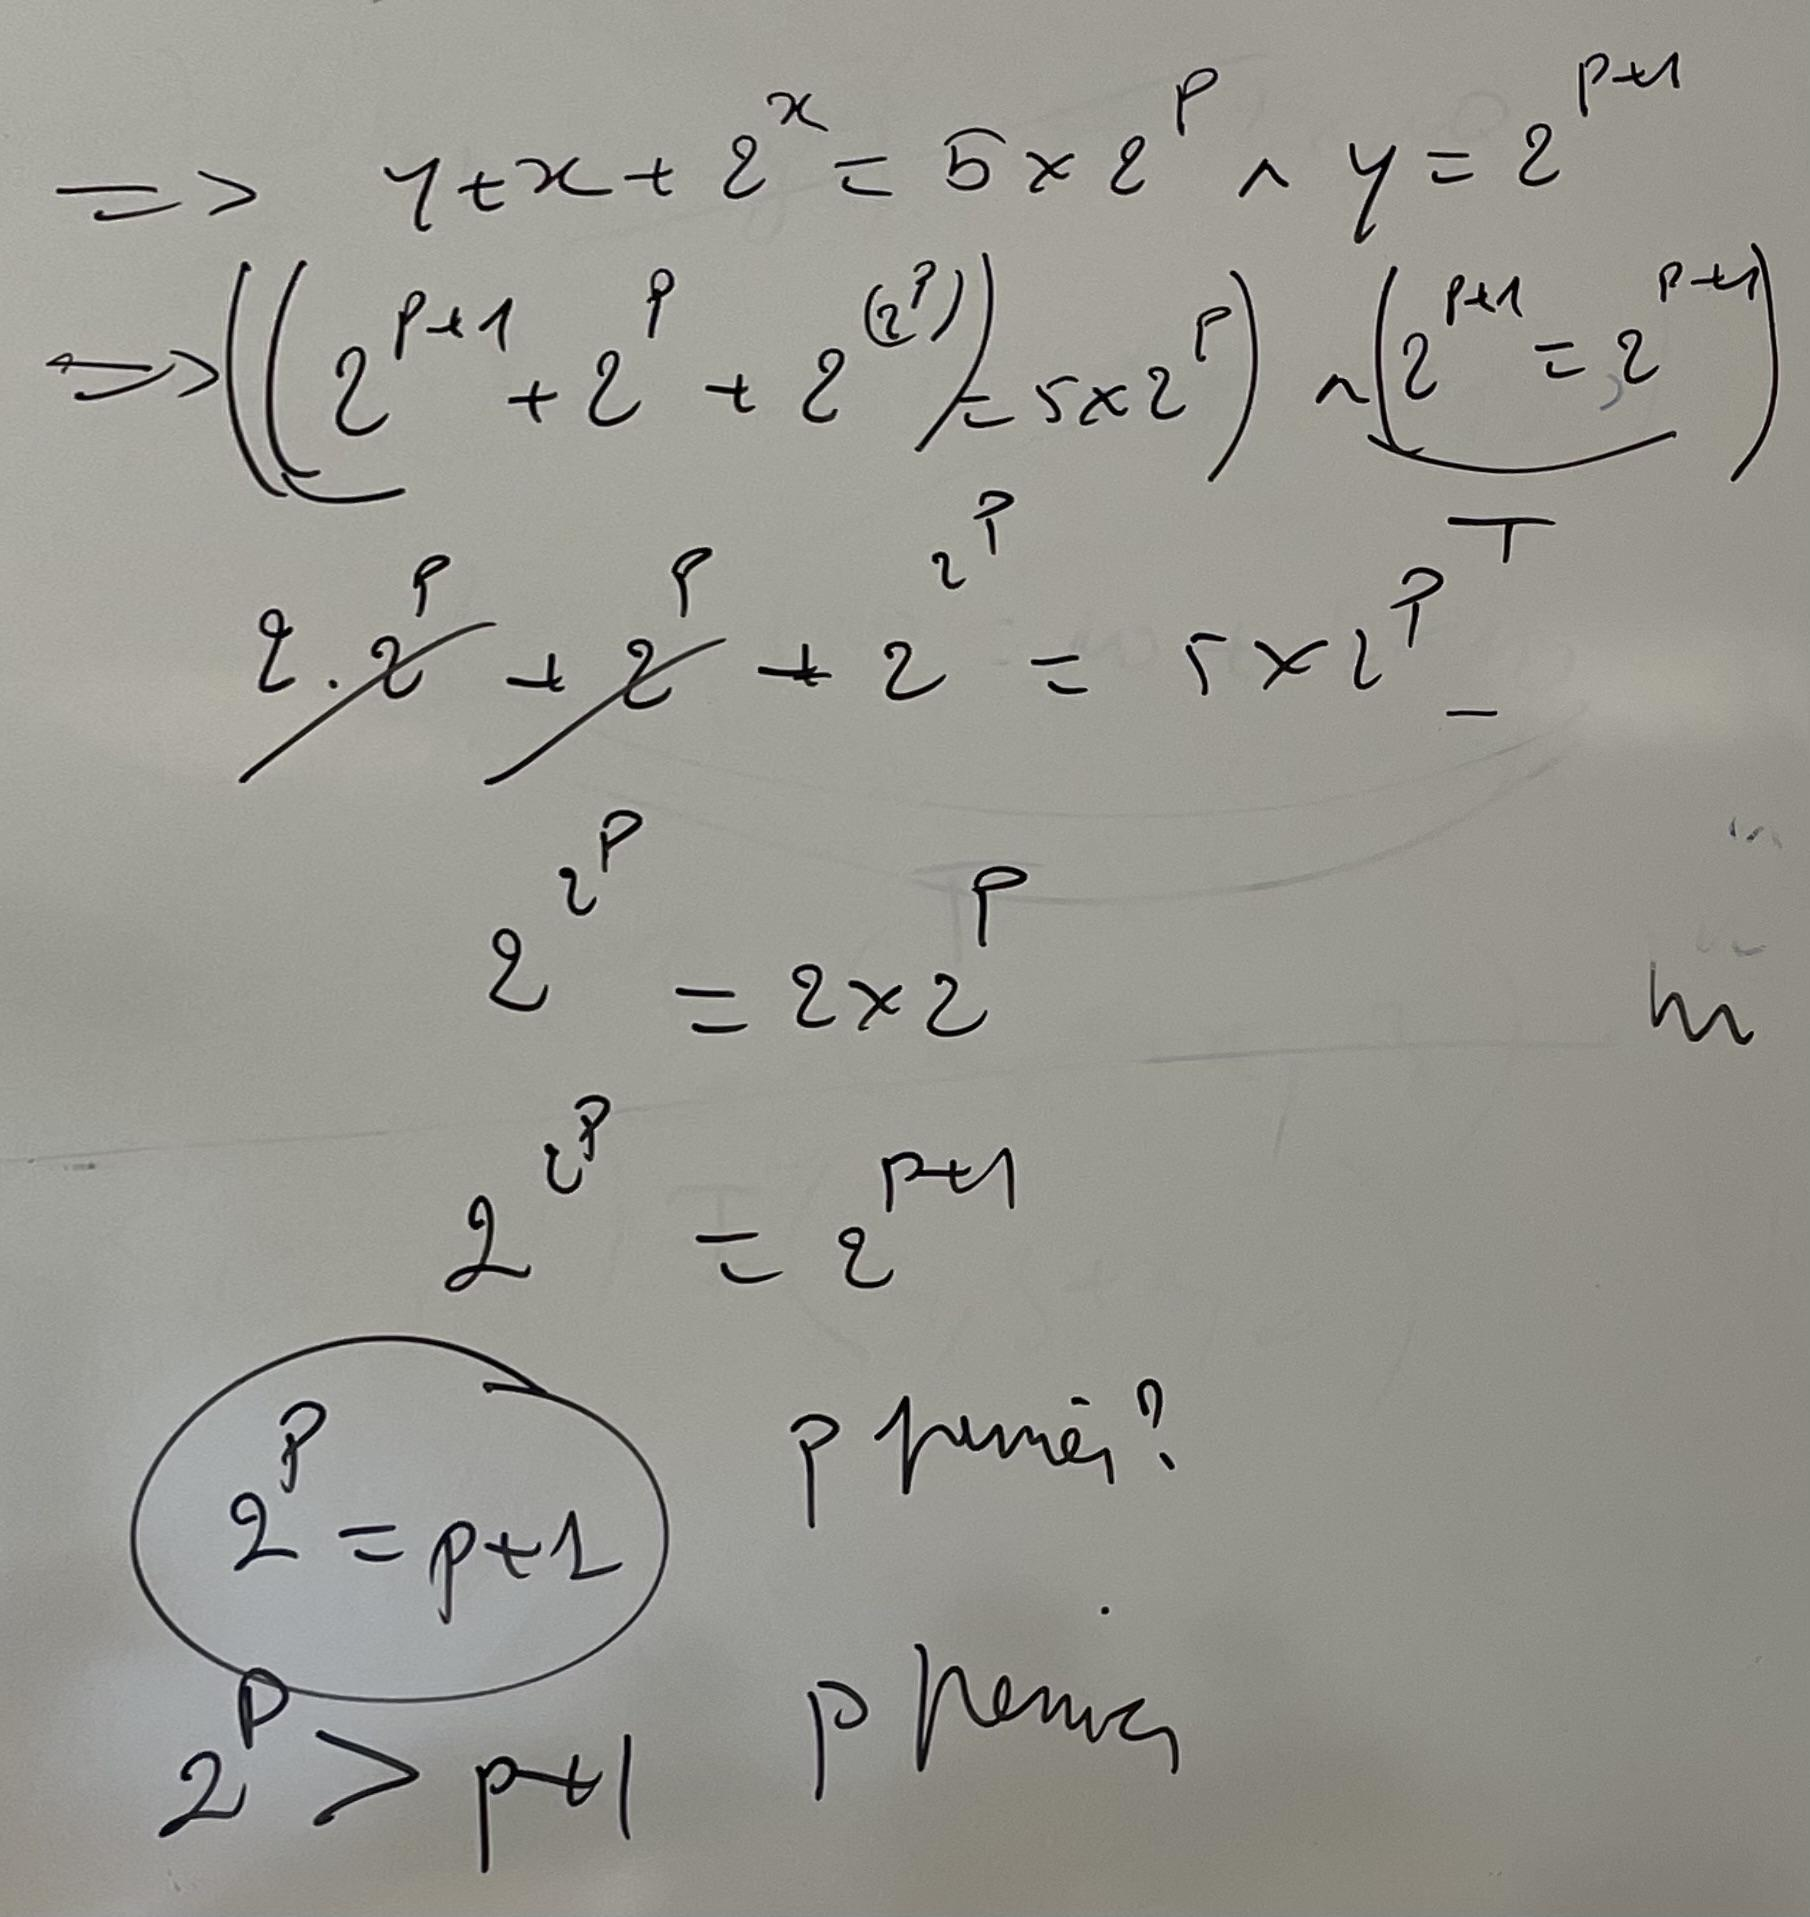 => y+x+2^x = 5×2^p ∧ y = 2^{p+1}
=> ((2^{p+1} + 2^p + 2^{(2^p)}) = 5×2^p) ∧ (2^{p+1} = 2^{p+1})
T
2.2^p + 2^p + 2^{2^p} = 5×2^p
2^{2^p} = 2×2^p
2^{2^p} = 2^{p+1}
2^p = p+1 p premier?
2^p > p+1 p premier